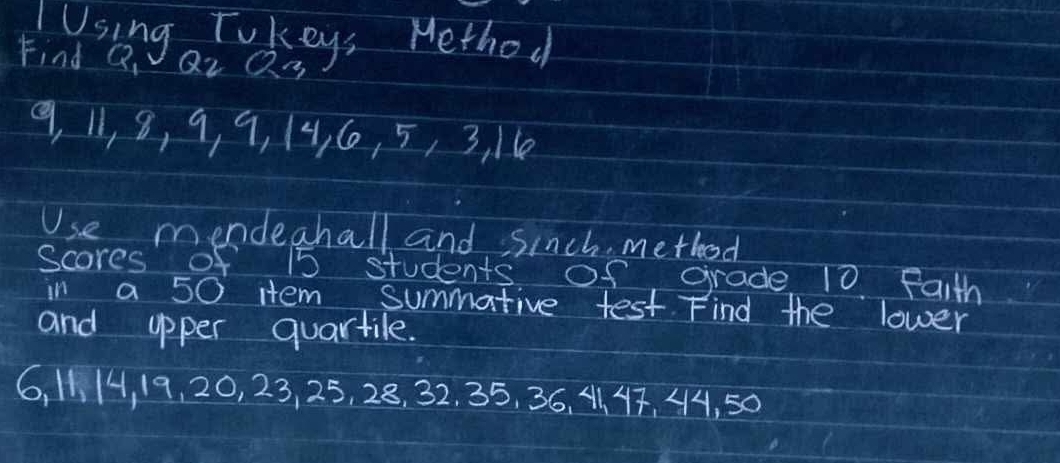 1 Using Tukeys Method
Find Q1 Q2 Q3
9, 11, 8, 9, 9, 14, 6, 5, 3, 16
Use mendeahall and sinch. method
Scores of 15 students of grade 10 faith
in a 50 item summative test. Find the lower
and upper quartile.
6, 11, 14, 19, 20, 23, 25, 28, 32, 35, 36, 41, 47, 44, 50